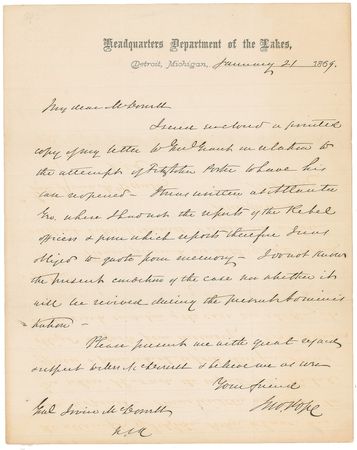 Headquarters Department of the Lakes,
Detroit, Michigan, January 21 1869.
My dear McDowell
I send enclosed a printed
copy of my letter to Genl Grant in relation to
the attempts of Fitzjohn Porter to have his
case reopened – It was written at Atlanta
Geo, where I had not the reports of the Rebel
officers & from which reports therefore I was
obliged to quote from memory – I do not know
the present condition of the case nor whether it
will be revived during the present Adminis
tration –
Please present me with great regard
& respect to Mrs McDowell & believe me as ever
Your friend
Jno Pope
Genl Irvin McDowell